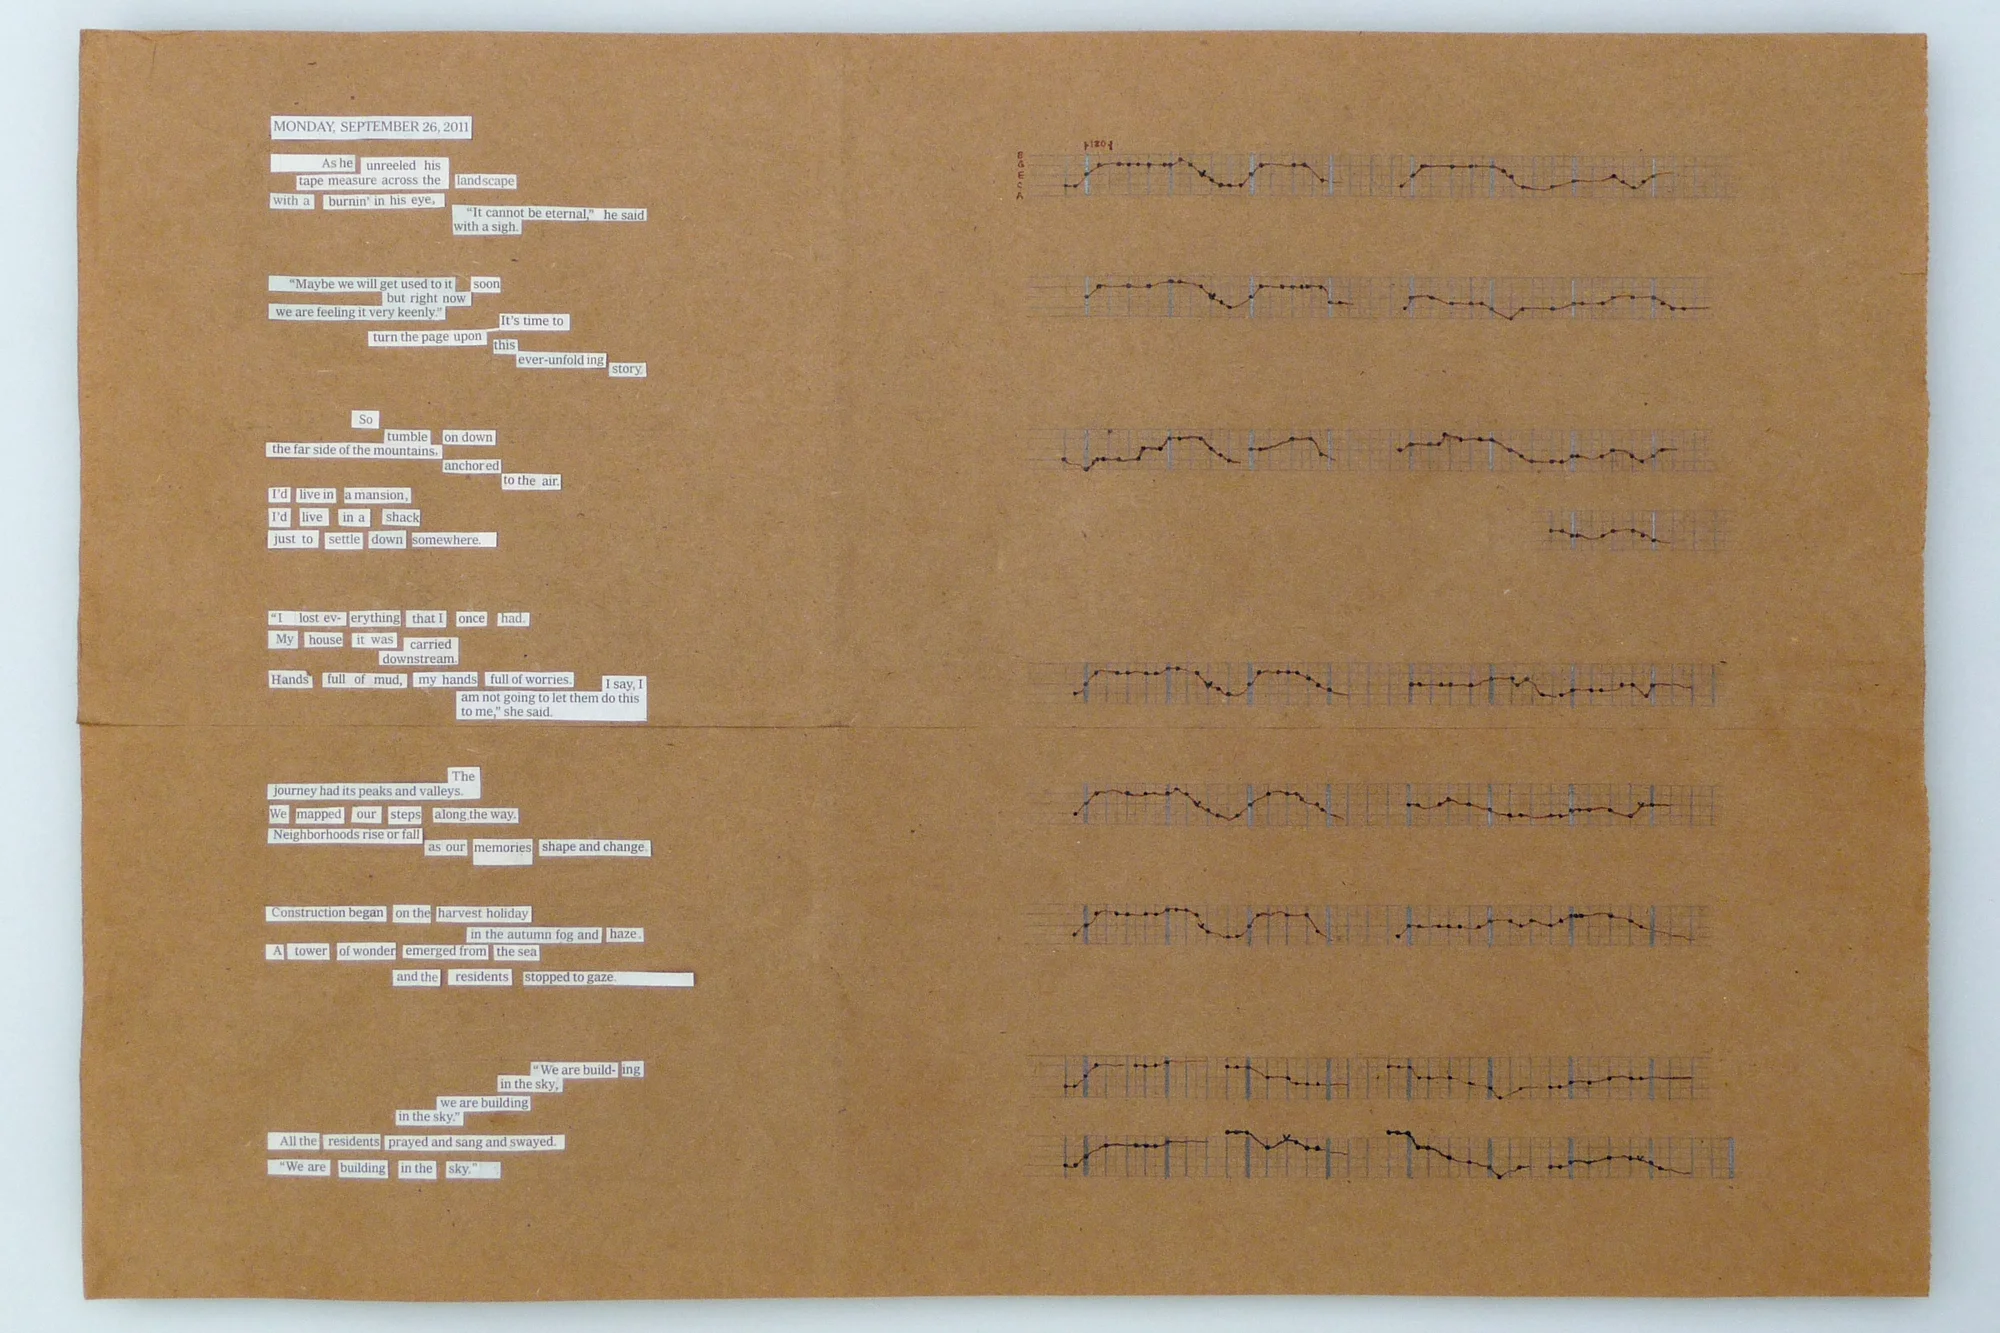 MONDAY, SEPTEMBER 26, 2011
As he unreeled his
tape measure across the landscape
with a burnin' in his eye,
"It cannot be eternal," he said
with a sigh.
"Maybe we will get used to it soon
but right now
we are feeling it very keenly."
It's time to
turn the page upon this
ever-unfolding
story.
So
tumble on down
the far side of the mountains.
anchored
to the air.
I'd live in a mansion,
I'd live in a shack
just to settle down somewhere.
"I lost ev- erything that I once had.
My house it was carried
downstream.
Hands full of mud, my hands full of worries. I say, I
am not going to let them do this
to me," she said.
The
journey had its peaks and valleys.
We mapped our steps along the way.
Neighborhoods rise or fall
as our memories shape and change.
Construction began on the harvest holiday
in the autumn fog and haze.
A tower of wonder emerged from the sea
and the residents stopped to gaze.
"We are build- ing
in the sky,
we are building
in the sky."
All the residents prayed and sang and swayed.
"We are building in the sky."
E
C
A